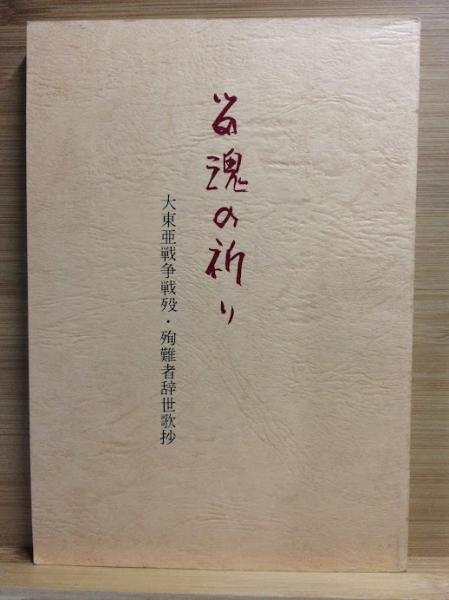 留魂の祈り
大東亜戦争戦歿・殉難者辞世歌抄